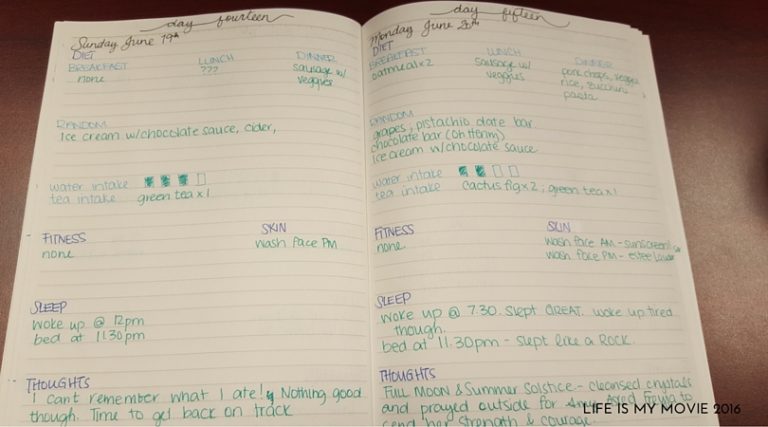 day fourteen
Sunday June 19th
DIET
BREAKFAST LUNCH DINNER
none ??? sausage w/
veggies
RANDOM
Ice cream w/chocolate sauce, cider,
water intake
tea intake green tea x 1
FITNESS SKIN
none wash face PM
SLEEP
woke up @ 12pm
bed at 11:30pm
THOUGHTS
I can't remember what I ate! Nothing good
though. Time to get back on track
day fifteen
Monday June
DIET
BREAKFAST LUNCH DINNER
oatmeal x 2 sausage w/ pork chops, veggie
veggies rice, zucchini
pasta
RANDOM
grapes, pistachio date bar
chocolate bar (Oh Henry)
Ice cream w/chocolate sauce
water intake
tea intake cactus fig x 2; green tea x 1
FITNESS SKIN
none wash face AM - sunscreen
wash face PM - estee lauder
SLEEP
woke up @ 7:30. slept GREAT. woke up tired
though.
bed at 11:30pm - slept like a ROCK.
THOUGHTS
FULL MOON & Summer Solstice - cleansed crystals
and prayed outside for
send her strength & courage.
LIFE IS MY MOVIE 2016